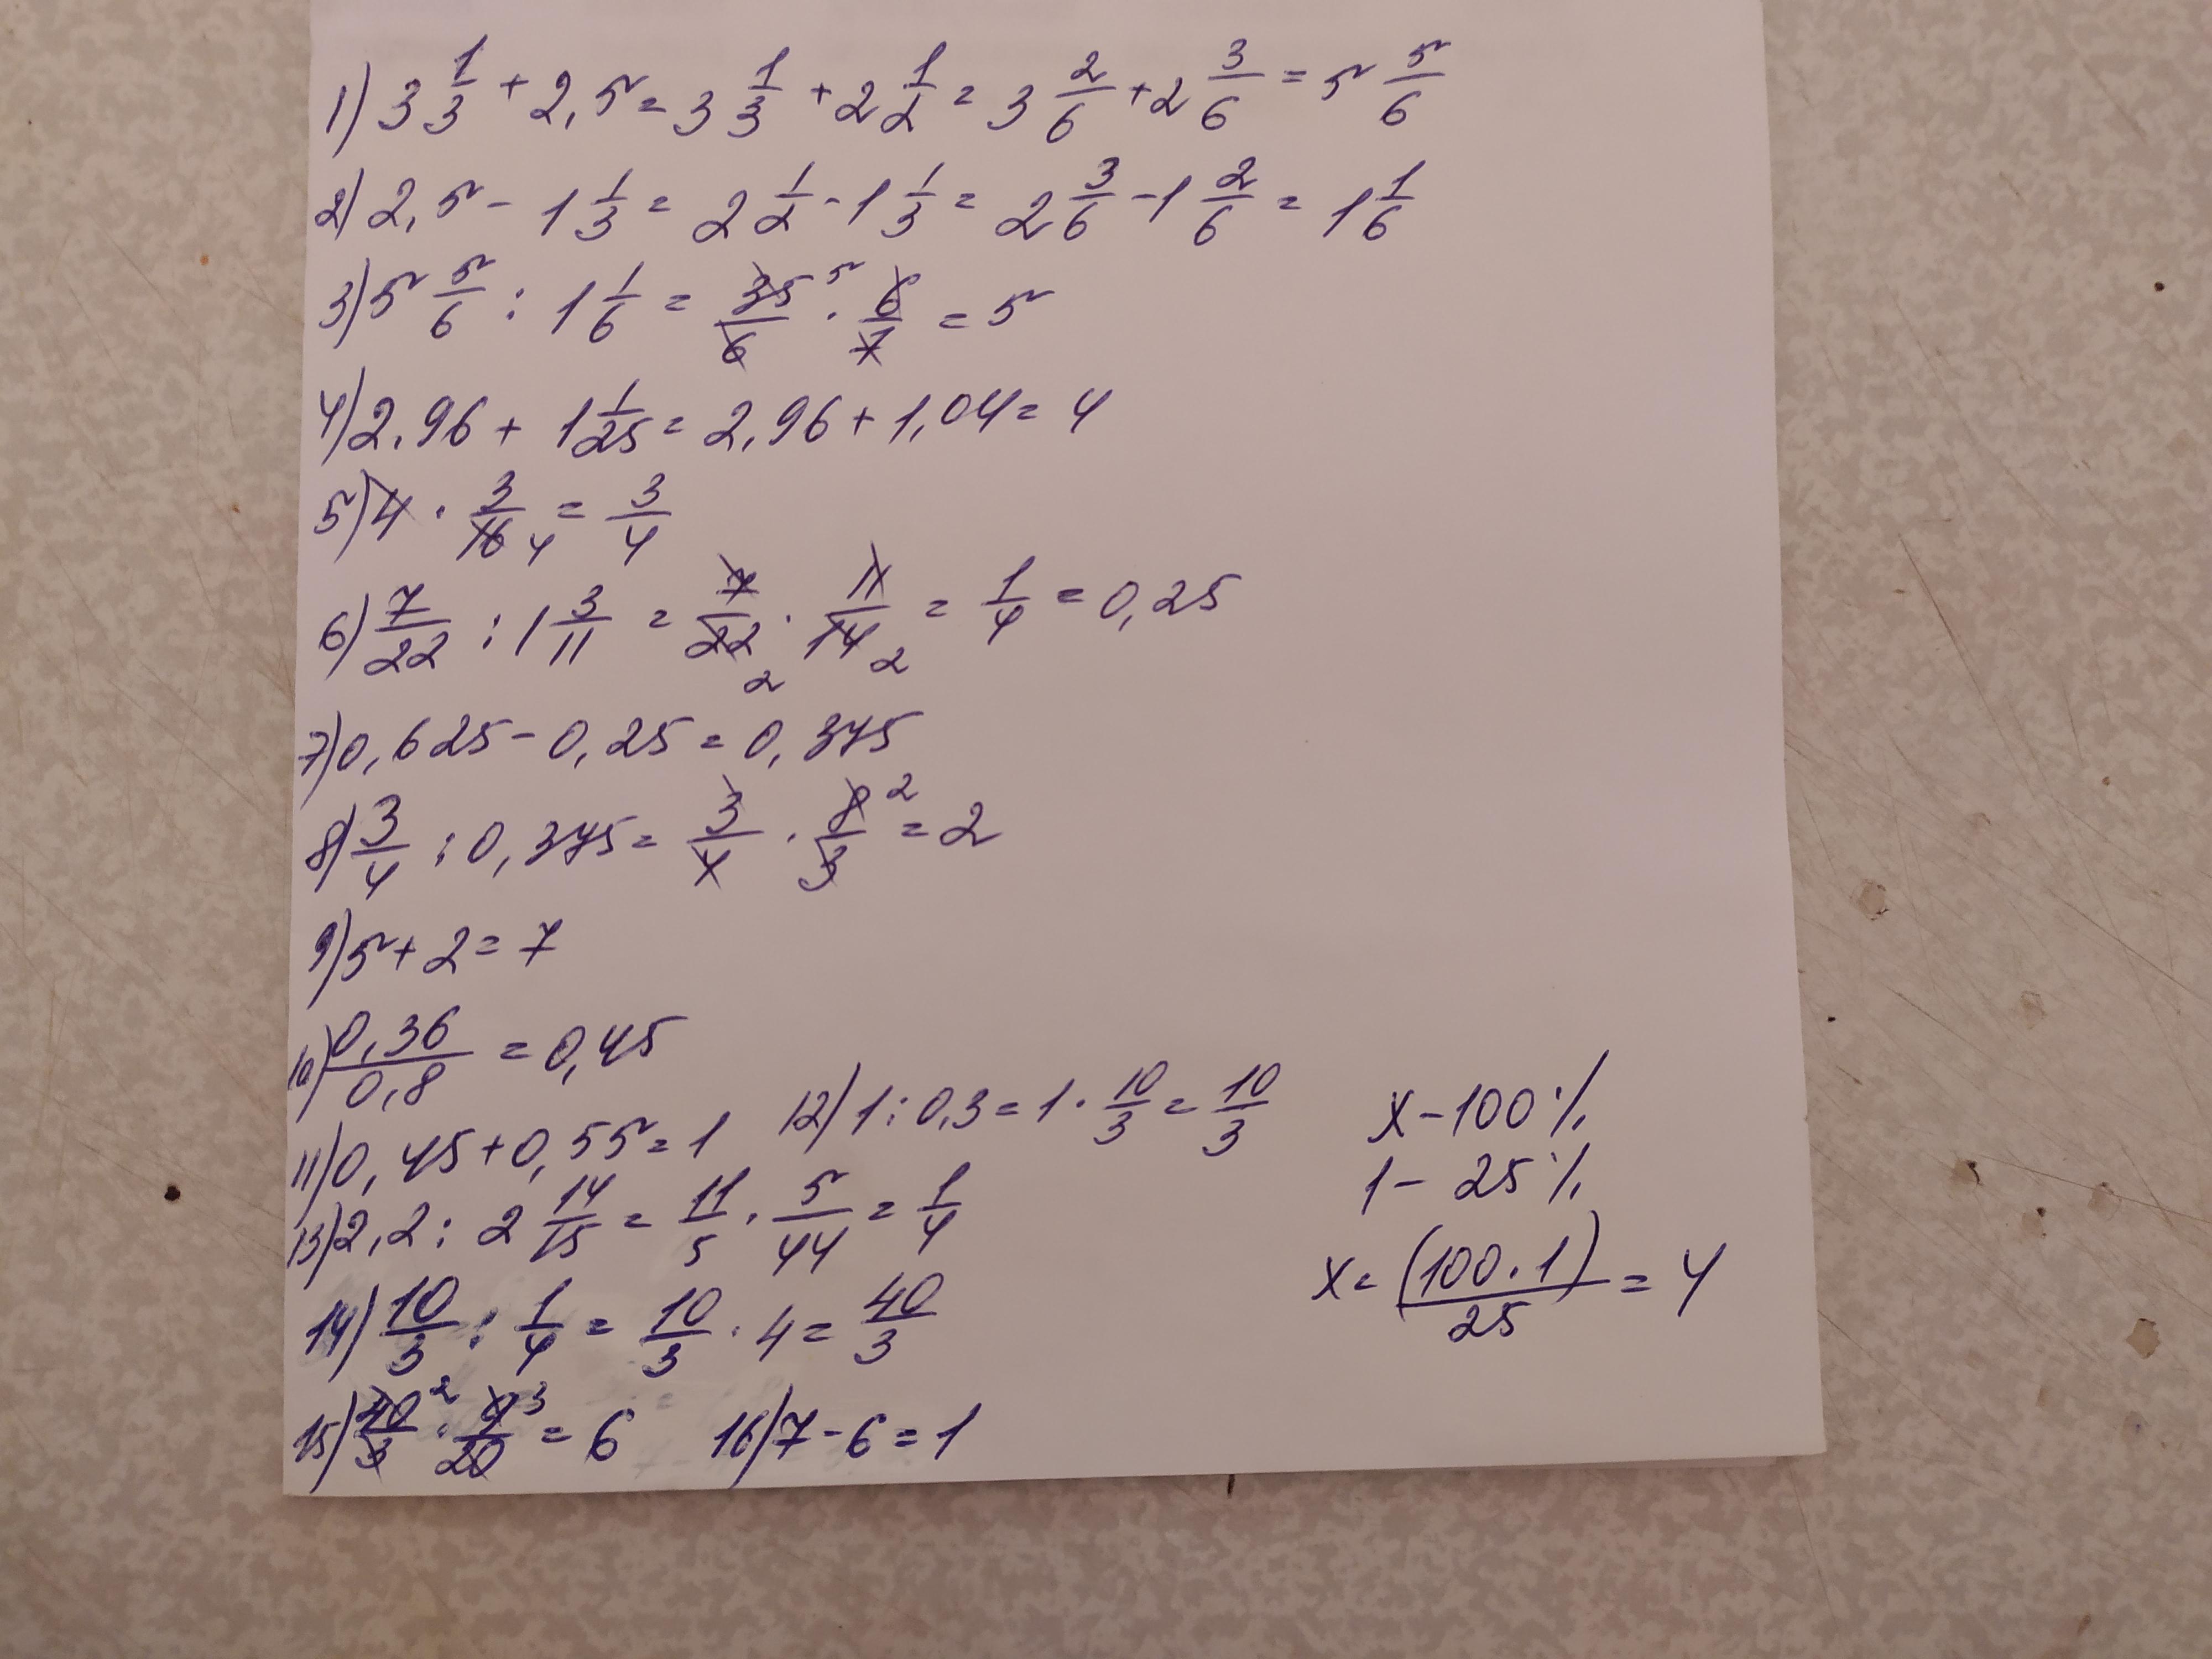 1) 3 1/3 + 2,5 = 3 1/3 + 2 1/2 = 3 2/6 + 2 3/6 = 5 5/6
2) 2,5 - 1 1/3 = 2 1/2 - 1 1/3 = 2 3/6 - 1 2/6 = 1 1/6
3) 5 5/6 : 1 1/6 = 35/6 5 · 6/7 = 5
4) 2,96 + 1 1/25 = 2,96 + 1,04 = 4
5) 4 · 3/16 4 = 3/4
6) 7/22 : 1 3/11 = 7/22 2 · 11/14 2 = 1/4 = 0,25
7) 0,625 - 0,25 = 0,375
8) 3/4 : 0,375 = 3/4 · 8/3 2 = 2
9) 5 + 2 = 7
10) 0,36/0,8 = 0,45
11) 0,45 + 0,55 = 1
12) 1 : 0,3 = 1 · 10/3 = 10/3
13) 2,2 : 2 14/15 = 11/5 · 5/44 = 1/4
14) 10/3 : 1/4 = 10/3 · 4 = 40/3
15) 40/3 2 · 9/20 3 = 6
16) 7 - 6 = 1
x - 100%
1 - 25%
x = (100 · 1)/25 = 4